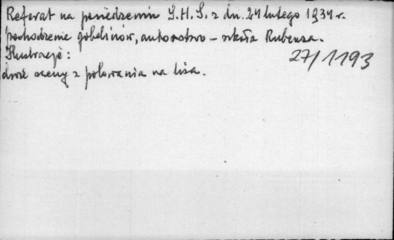 Referat na posiedzeniu S.H.S. z dn. 24 lutego 1934 r.
pochodzenie gobelinów, autorstwo – szkoła Rubensa.
Ilustracje:
dwie sceny z polowania na lisa.
27/1193